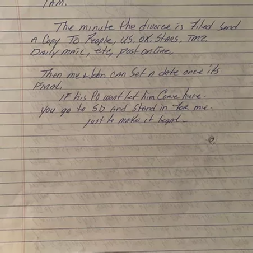 I AM.
The minute the divorce is filed send
A Copy To People, US, OK, Stars, TMZ
Daily mail, etc, post online.
Then my can set a date once its
Final.
If his PO wont let him Come here
you go to SD and Stand in for me.
just to make it legal.